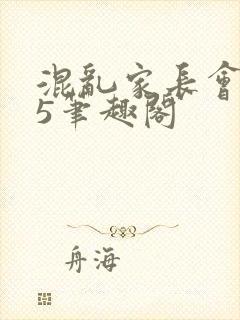 混亂家長會
5筆趣閣
舟海